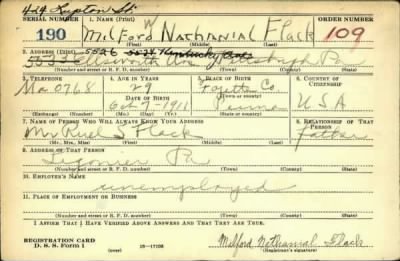 424 Lupton St
SERIAL NUMBER 1. NAME (Print) ORDER NUMBER
190 Milford Nathanial Flack 109
(First) (Middle) (Last)
2. ADDRESS (Print)
5526 Kentucky
Ellsworth Ave Pittsburgh Pa
(Number and street or R. F. D. number) (Town) (County) (State)
3. TELEPHONE 4. AGE IN YEARS 5. PLACE OF BIRTH 6. COUNTRY OF CITIZENSHIP
Ma 0768 29 Fayette Co. U S A
DATE OF BIRTH
Oct 7 - 1911 Penna
(Exchange) (Number) (Mo.) (Day) (Yr.) (State or country)
7. NAME OF PERSON WHO WILL ALWAYS KNOW YOUR ADDRESS 8. RELATIONSHIP OF THAT PERSON
Mr Ruel S Flack father
(Mr., Mrs., Miss) (First) (Middle) (Last)
9. ADDRESS OF THAT PERSON
Ligonier Pa
(Number and street or R. F. D. number) (Town) (County) (State)
10. EMPLOYER'S NAME
unemployed
11. PLACE OF EMPLOYMENT OR BUSINESS
(Number and street or R. F. D. number) (Town) (County) (State)
I AFFIRM THAT I HAVE VERIFIED ABOVE ANSWERS AND THAT THEY ARE TRUE.
REGISTRATION CARD
D. S. S. Form 1 16—17105 Milford Nathanial Flack
(Registrant's signature)